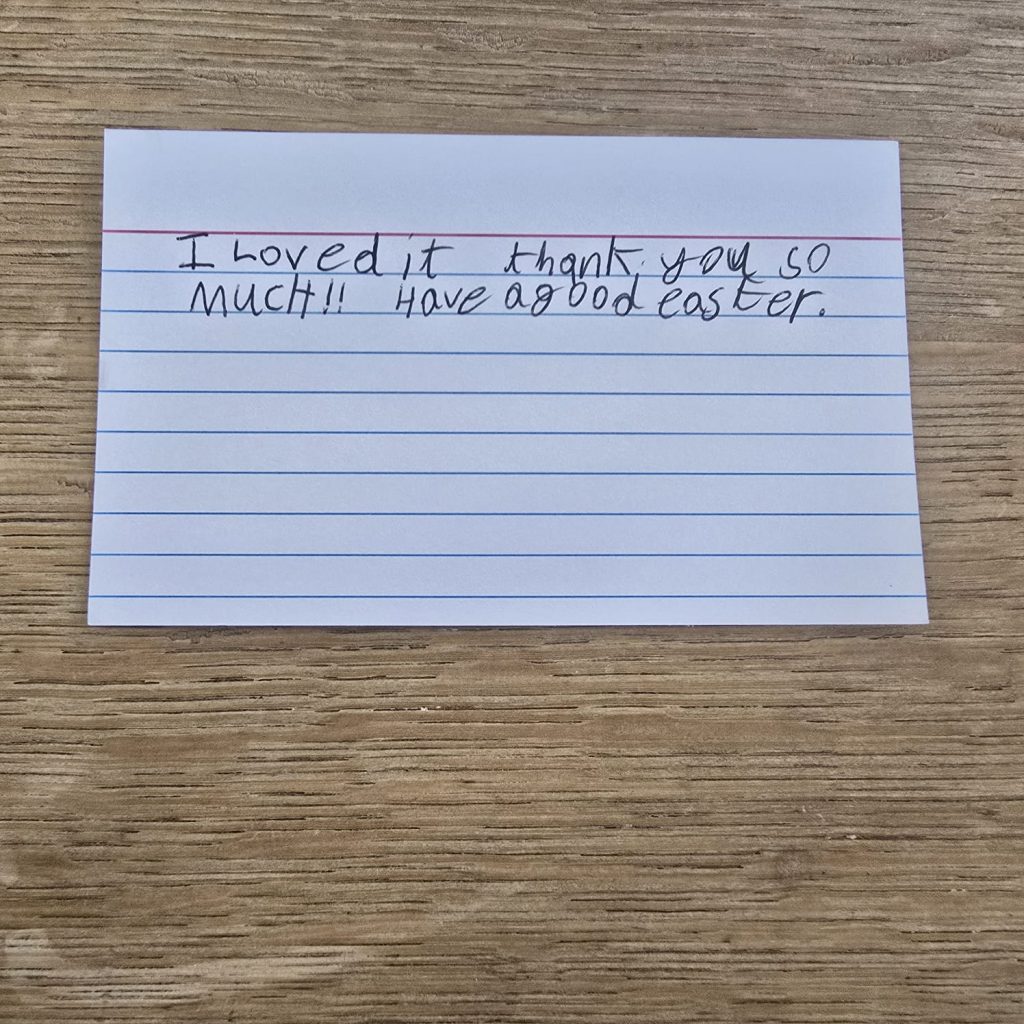 I Loved it thank you so
MUCH!! Have a good easter.